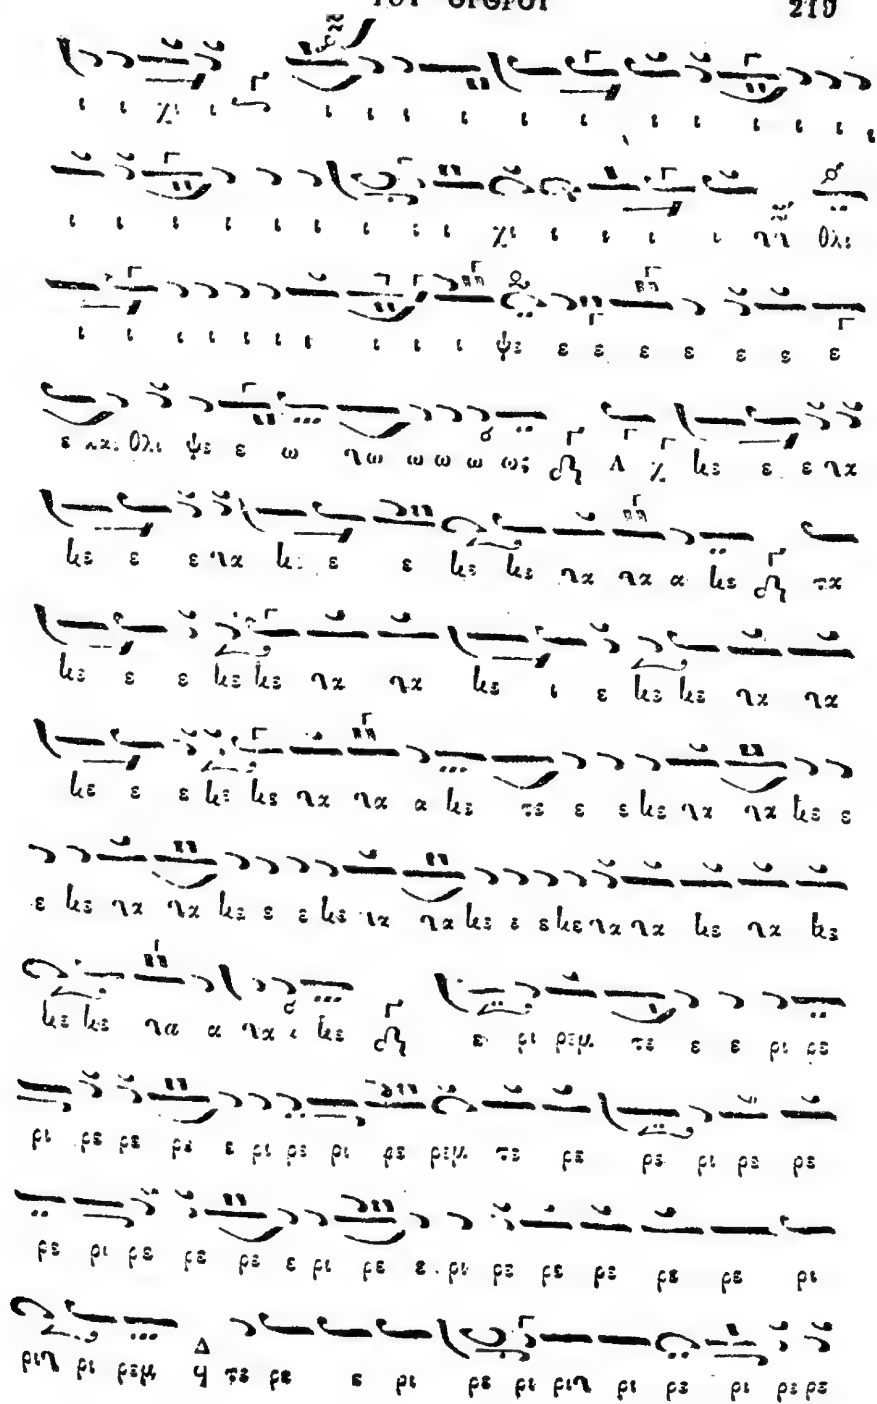 ΤΟΥ ΟΡΘΡΟΥ 219
ι ι χι ι ι ι ι ι ι ι ι ι ι ι ι ι
ι ι ι ι ι ι ι ι ι χι ι ι ι ι θλι
ι ι ι ι ι ι ι ι ι ι ψε ε ε ε ε ε ε ε
ε θλι ψε ε ω νω ω ω ω ως Λ χ κε ε ε να
κε ε ε να κε ε ε κε κε να να α κε τα
κε ε ε κε κε να να κε ι ε κε κε να να
κε ε ε κε κε να να α κε τε ε ε κε να να κε ε
ε κε να να κε ε ε κε να να κε ε ε κε να να κε να κε
κε κε να α να ι κε ε ρι ρεμ τε ε ε ρι ρε
ρι ρε ρε ρε ε ρι ρε ρι ρε ρεμ τε ρε ρε ρι ρε ρε
ρε ρι ρε ρε ρε ε ρι ρε ε ρι ρε ρε ρε ρε ρε ρι
ριν ρι ρεμ Δ τε ρε ε ρι ρε ρι ριν ρι ρε ρι ρε ρε